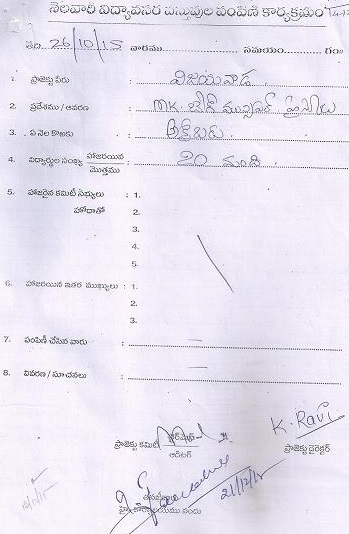 నెలవారీ విద్యావసర వస్తువుల పంపిణీ కార్యక్రమం
తేది. 26/10/15 వారము............ సమయం............ గం॥
1. ప్రాజెక్టు పేరు : విజయవాడ
2. ప్రదేశము / ఆవరణ : MK. బేగ్ మున్సిపల్ హైస్కూలు
3. ఏ నెల కొరకు : అక్టోబరు
4. విద్యార్థుల సంఖ్య హాజరయిన : 20 మంది
మొత్తము
5. హాజరైన కమిటీ సభ్యులు : 1.
హోదాతో 2.
3.
4.
5.
6. హాజరయిన ఇతర ముఖ్యులు : 1.
2.
3.
7. పంపిణీ చేసిన వారు : —
8. వివరణ / సూచనలు : —
K. Ravi
ప్రాజెక్టు కమిటీ ఛైర్మన్
ఆడిటర్
ప్రాజెక్టు డైరెక్టర్
21/12/15
కార్యాలయము నందు